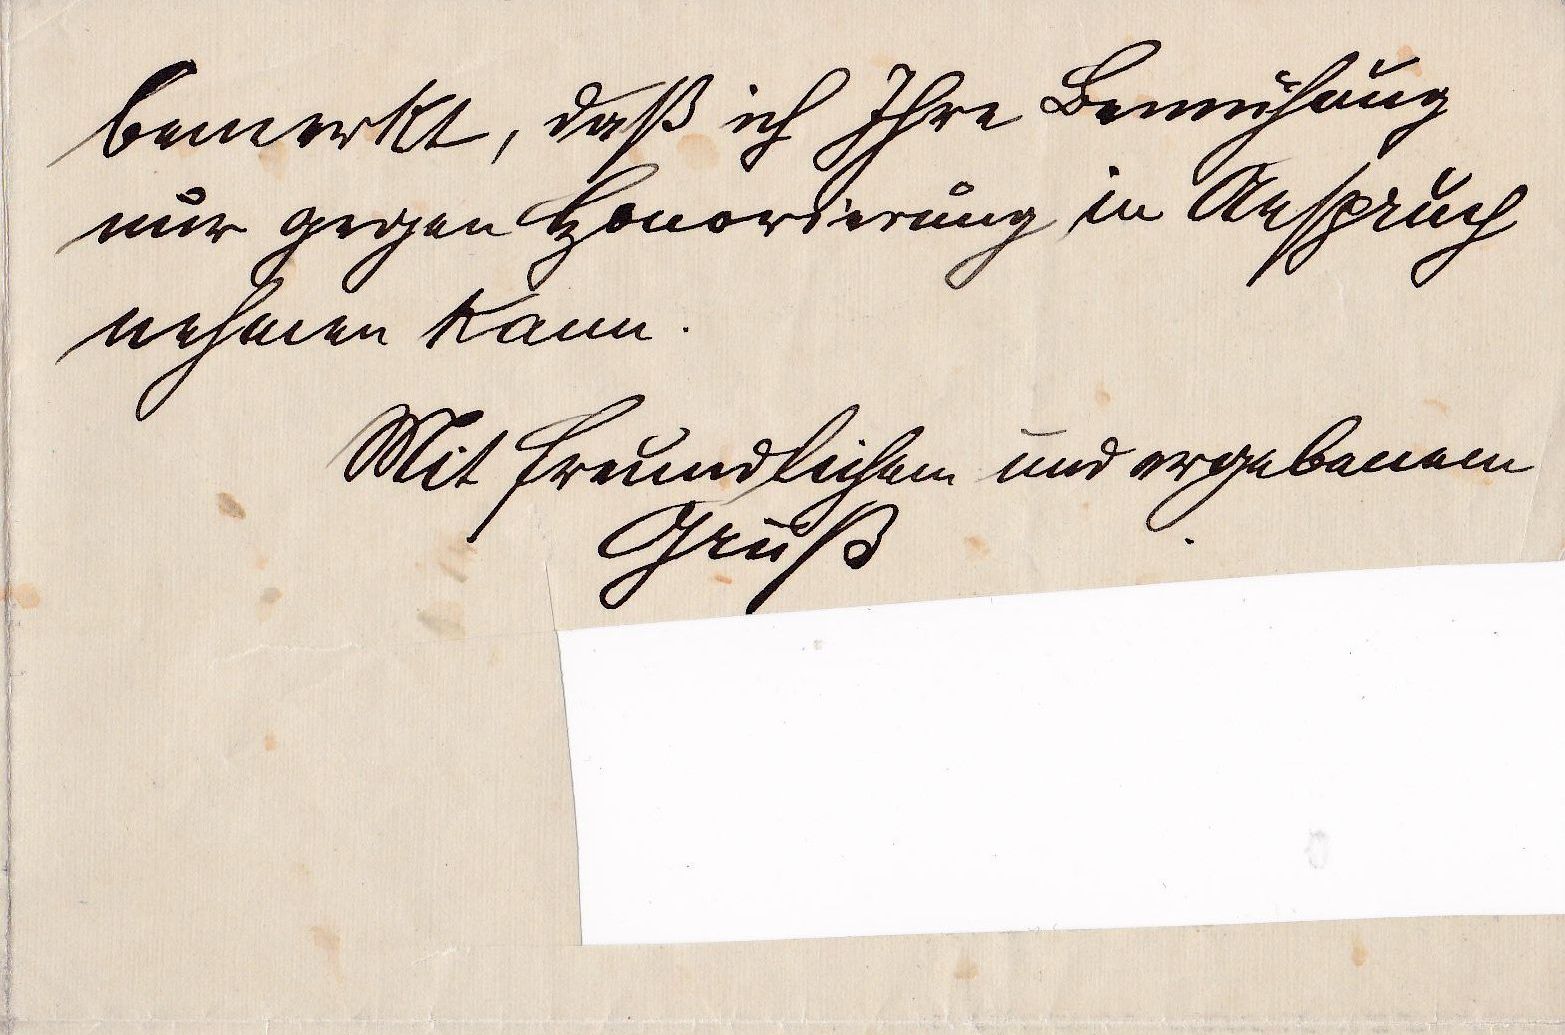 bemerkt, daß ich Ihre Bemühung
nur gegen Honorierung in Anspruch
nehmen kann.
Mit freundlichem und ergebenem
Gruß